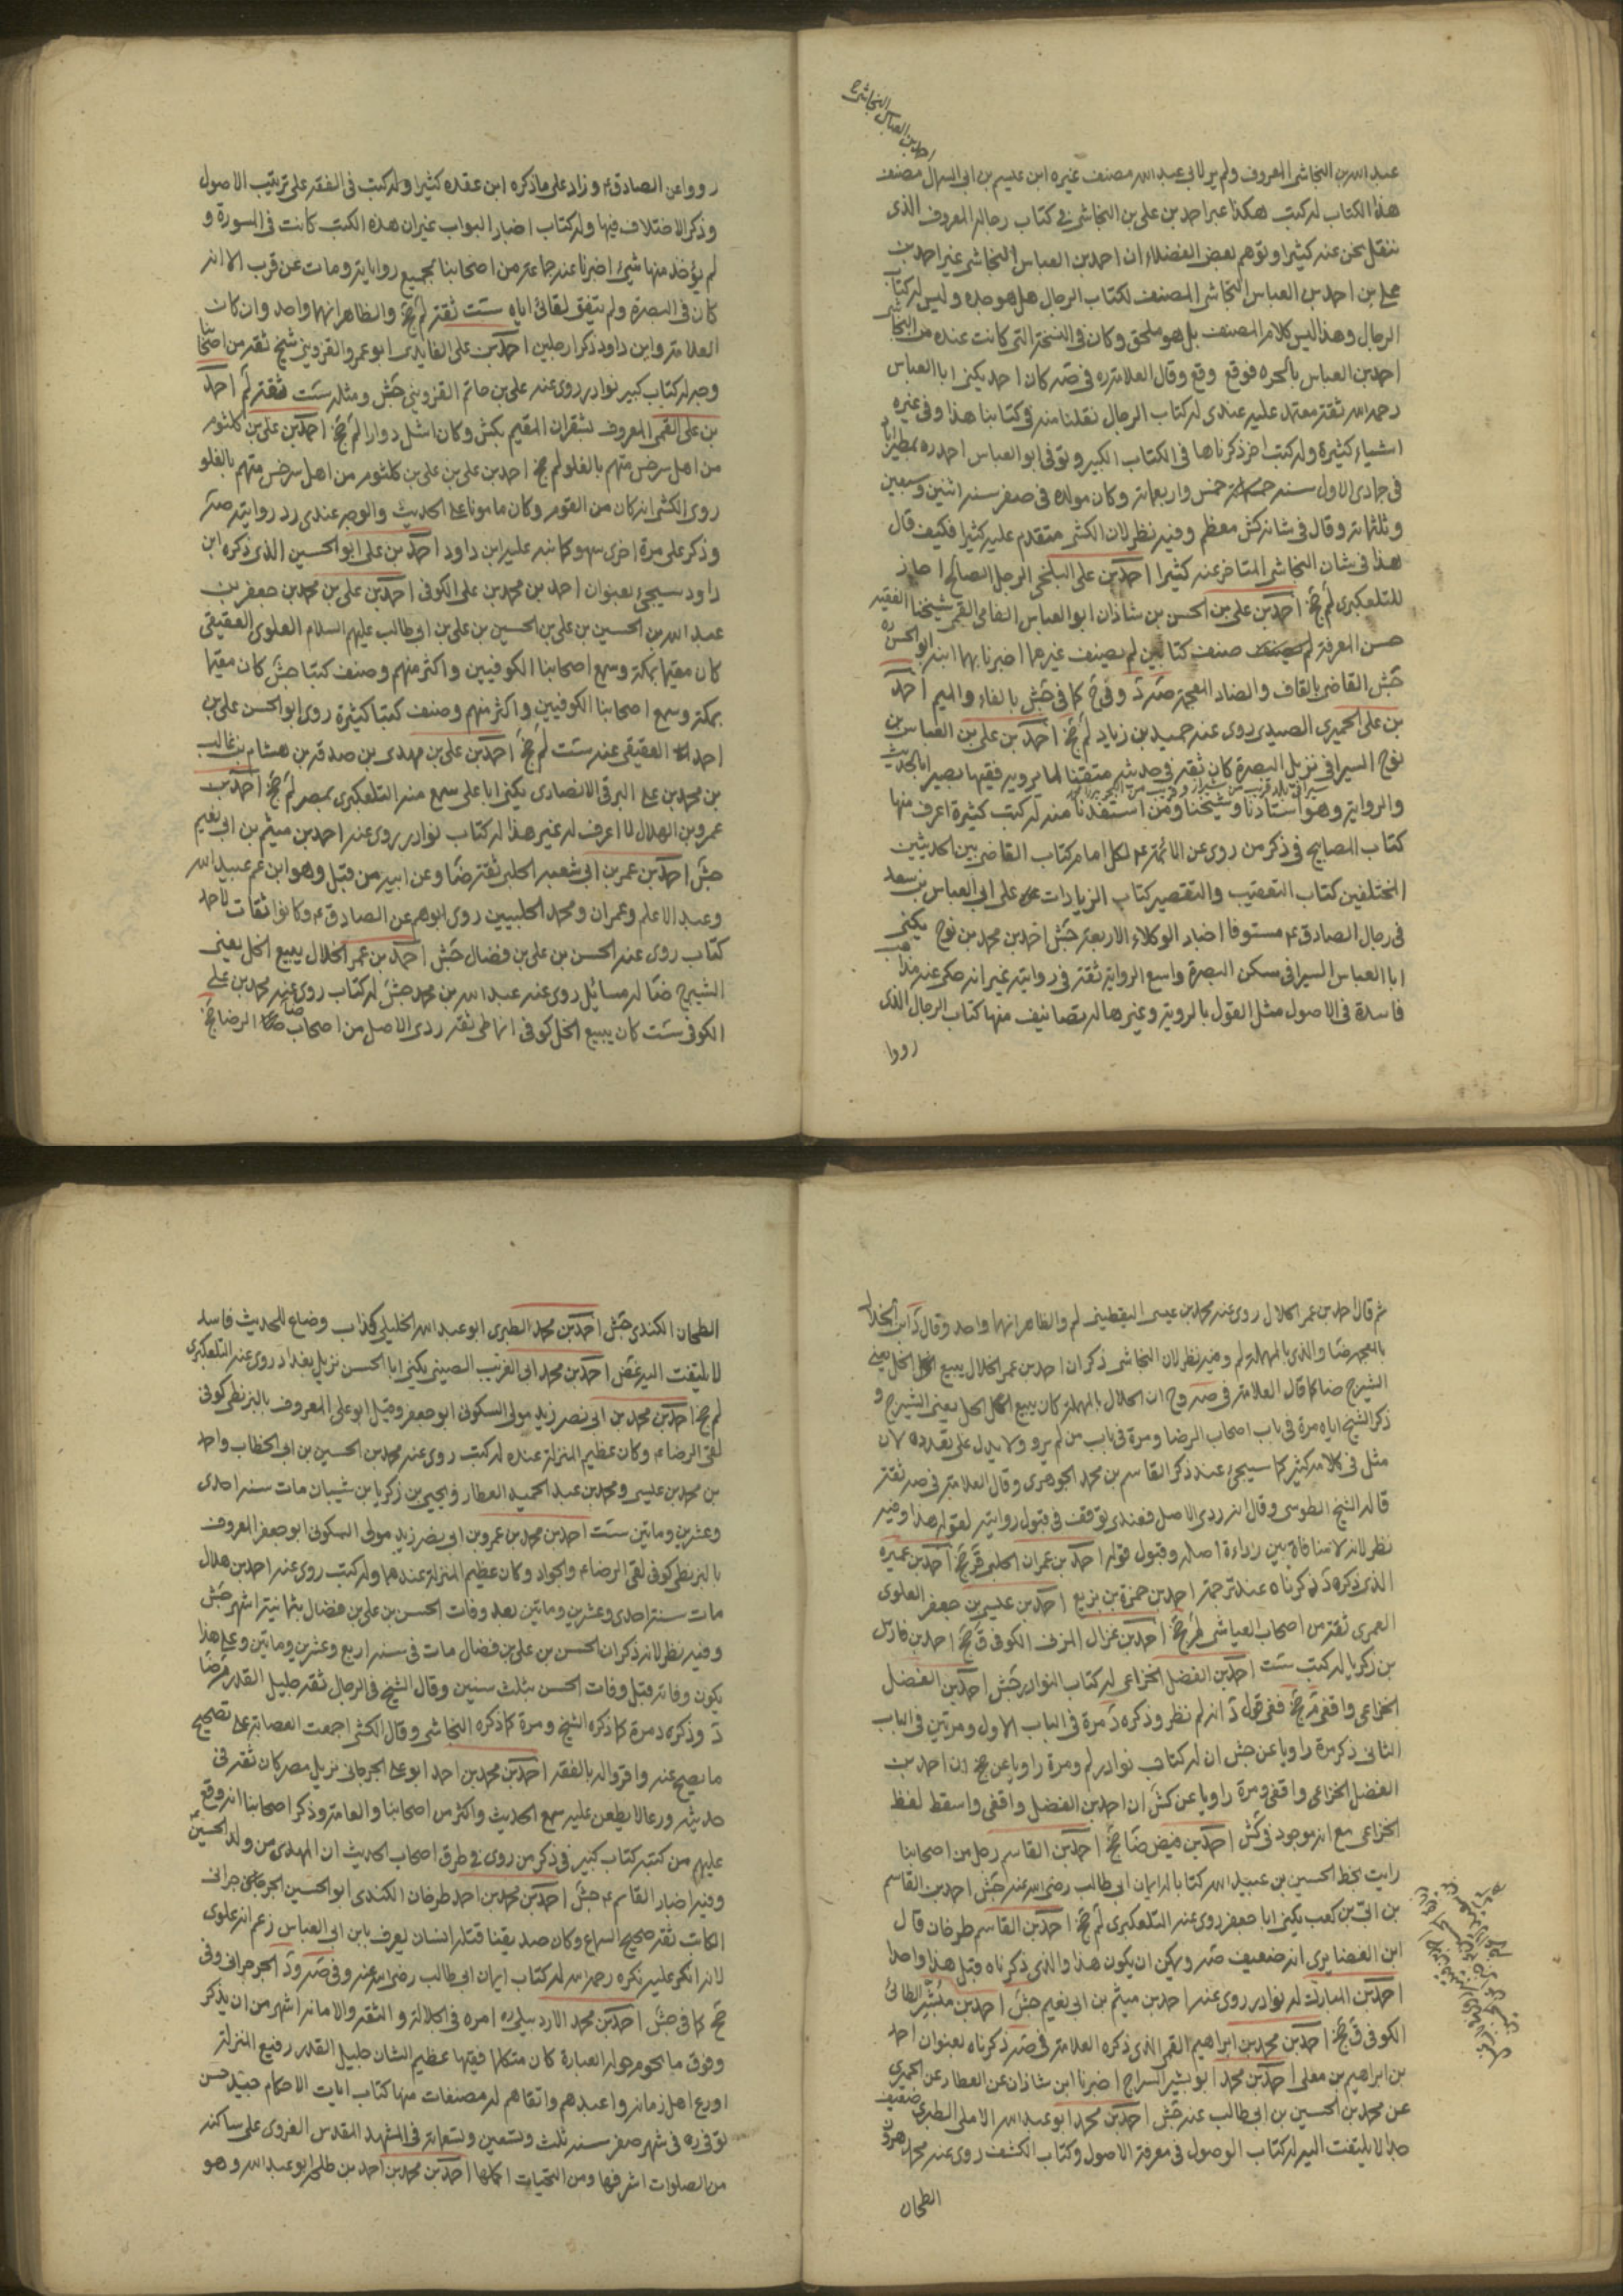 احمد بن العباس النجاشي
عبد الله بن النجاشي المعروف ولم ير لابي عبد الله مصنف غيره ابن عيسى بن ابى السمال مصنف
هذا الكتاب له كتب هكذا عبر احمد بن على بن النجاشي في كتاب رجاله المعروف الذى
ننقل نحن عنه كثيرا وتوهم بعض الفضلاء ان احمد بن العباس النجاشي غير احمد بن
على بن احمد بن العباس النجاشي المصنف لكتاب الرجال هل هو جده وليس له كتاب
الرجال وهذا ليس كلام المصنف بل هو ملحق وكان في النسخة التى كانت عنده من النجاشي
احمد بن العباس بالحمرة فوقع وقع وقال العلامة ره في صه كان احمد يكنى ابا العباس
رحمه الله ثقة معتمد عليه عندى له كتاب الرجال نقلنا منه في كتابنا هذا وفي غيره
اشياء كثيرة وله كتب اخر ذكرناها في الكتاب الكبير وتوفى ابو العباس احمد ره بمطيراباد
في جمادى الاول سنة خمس واربعمائة وكان مولده في صفر سنة اثنين وسبعين
وثلثمائة وقال د في شانه كش معظم وفيه نظر لان الكشى متقدم عليه كثيرا فكيف قال
هذا في شان النجاشي المتاخر عنه كثيرا احمد بن على البلخى الرجل الصالح اجاز
للتلعكبرى لم جخ احمد بن على بن الحسن بن شاذان ابو العباس الفامى القمى شيخنا الفقيه
حسن المعرفة صنف كتابين لم يصنف غيرهما اخبرنا بهما ابنه ابو الحسن ره
جش القاضى بالقاف والضاد المعجمة صه د وفي خ كما في جش بالفاء والميم احمد
بن على الحميرى الصيدى روى عنه حميد بن زياد لم جخ احمد بن على بن العباس بن
نوح السيرافى نزيل البصرة كان ثقة في حديثه متقنا لما يرويه فقيها بصيرا بالحديث
والرواية وهو استادنا وشيخنا ومن استفدنا منه له كتب كثيرة اعرف منها
كتاب المصابيح في ذكر من روى عن الائمة عم لكل امام كتاب القاضى بين الحديثين
المختلفين كتاب التعقيب والتقصير كتاب الزيادات على ابى العباس بن سعد
في رجال الصادق عم مستوفا اخبار الوكلاء الاربعة جش احمد بن محمد بن نوح يكنى
ابا العباس السيرافى سكن البصرة واسع الرواية ثقة في روايته غير انه حكى عنه مذاهب
فاسدة في الاصول مثل القول بالروية وغيرها له تصانيف منها كتاب الرجال الذى
رووا
رووا عن الصادق عم وزاد على ما ذكره ابن عقده كثيرا وله كتب في الفقه على ترتيب الاصول
وذكر الاختلاف فيها وله كتاب اخبار البواب غير ان هذه الكتب كانت في المسودة و
لم يؤخذ منها شيئ اخبرنا عنه جماعة من اصحابنا بجميع رواياته ومات عن قرب الا انه
كان في البصرة ولم يتفق لقائى اياه ست ثقة لم جخ والظاهر انهما واحد وان كان
العلامة وابن داود ذكرا رجلين احمد بن على الفايدى ابو عمر والقزوينى شيخ ثقة من اصحابنا
وجه له كتاب كبير نوادر روى عنه على بن حاتم القزوينى جش ومثله ست ثقة لم احمد
بن على القمى المعروف بشقران المقيم بكش وكان اشل دوارا لم جخ احمد بن على بن كلثوم
من اهل سرخس متهم بالغلو لم جخ احمد بن على بن على بن كلثوم من اهل سرخس متهم بالغلو
روى الكشى انه كان من القوم وكان مامونا على الحديث والوجه عندى رد روايته صه
وذكر على مرة اخرى سهو كما نبه عليه ابن داود احمد بن على ابو الحسين الذى ذكره ابن
داود سيجئ بعنوان احمد بن محمد بن على الكوفى احمد بن على بن محمد بن جعفر بن
عبد الله بن الحسين بن على بن الحسين بن على بن ابى طالب عليهم السلام العلوى العقيقى
كان مقيما بمكة وسمع اصحابنا الكوفيين واكثر منهم وصنف كتبا جش كان مقيما
بمكة وسمع اصحابنا الكوفيين واكثر منهم وصنف كتبا كثيرة روى ابو الحسن على بن
احمد العقيقى عنه ست لم جخ احمد بن على بن مهدى بن صدقة بن هشام بن غالب
بن محمد بن على البرقى الانصارى يكنى ابا على سمع منه التلعكبرى بمصر لم جخ احمد بن
عمرو بن المنهال لا اعرف له غير هذا له كتاب نوادر روى عنه احمد بن ميثم بن ابى نعيم
جش احمد بن عمر بن ابى شعبه الحلبى ثقة ضا وعن ابيه من قبل وهو ابن عم عبيد الله
وعبد الاعلى وعمران ومحمد الحلبيين روى ابوهم عن الصادق عم وكانوا ثقات لاحمد
كتاب روى عنه الحسن بن على بن فضال جش احمد بن عمر الخلال يبيع الخل يعنى
الشيرج ضا له مسائل روى عنه عبد الله بن محمد جش له كتاب روى عنه محمد بن على
الكوفى ست كان يبيع الخل كوفى انماطى ثقة ردى الاصل من اصحاب الرضا جخ
ثم قال احمد بن عمر الحلال روى عنه محمد بن عيسى اليقطينى لم والظاهر انهما واحد وقال د ابن الخلال
بالمعجمة ضا والذى بالمهملة لم وفيه نظر لان النجاشى ذكر ان احمد بن عمر الخلال يبيع الخل يعنى
الشيرج ضا كما قال العلامة في صه وح ان الحلال بالمهملة كان يبيع الحل يعنى الشيرج و
ذكر الشيخ اياه مرة في باب اصحاب الرضا ومرة في باب من لم يرو ولا يدل على تعدده لان
مثل في كلامه كثير كما سيجئ عند ذكر القاسم بن محمد الجوهرى وقال العلامة في صه ثقة
قاله الشيخ الطوسى وقال انه ردى الاصل فعندى توقف في قبول روايته لقوله هذا وفيه
نظر لانه لا منافاة بين رداءة اصله وقبول قوله احمد بن عمران الحلبى قر جخ احمد بن عميره
الذى ذكره د ذكرناه عند ترجمة احمد بن حمزة بن بزيع احمد بن عيسى بن جعفر العلوى
العمرى ثقة من اصحاب العياشى لم جخ احمد بن غزال المزنى الكوفى ق جخ احمد بن فارس
بن زكريا له كتب ست احمد بن الفضل الخزاعى له كتاب النوادر جش احمد بن الفضل
الخزاعى واقفى م جخ ففى قول د انه لم نظر وذكره د مرة في الباب الاول ومرتين في الباب
الثانى ذكر مرة راويا عن جش ان له كتاب نوادر لم ومرة راويا عن جخ ان احمد بن
الفضل الخزاعى واقفى ومرة راويا عن كش ان احمد بن الفضل واقفى واسقط لفظ
الخزاعى مع انه موجود في كش احمد بن فيض ضا جخ احمد بن القاسم رجل من اصحابنا
رايت بخط الحسين بن عبيد الله كتابا له ايمان ابى طالب رضى الله عنه جش احمد بن القاسم
بن ابىّ بن كعب يكنى ابا جعفر روى عنه التلعكبرى لم جخ احمد بن القاسم طرخان قال
ابن الغضايرى انه ضعيف صه ويمكن ان يكون هذا والذى ذكرناه قبل هذا واحدا
احمد بن المبارك له نوادر روى عنه احمد بن ميثم بن ابى نعيم جش احمد بن مبشر الطائى
الكوفى ق جخ احمد بن محمد بن ابراهيم القمى الذى ذكره العلامة في صه ذكرناه بعنوان احمد
بن ابراهيم بن معلى احمد بن محمد ابو بشير السراج اخبرنا ابن شاذان عن العطار عن الحميرى
عن محمد بن الحسين بن ابى طالب عنه جش احمد بن محمد ابو عبد الله الاملى الطبرى ضعيف
جدا لا يلتفت اليه له كتاب الوصول في معرفة الاصول وكتاب الكشف روى عنه محمد بن هرون
الطحان
الطحان الكندى جش احمد بن محمد الطبرى ابو عبد الله الخليلى كذاب وضاع للحديث فاسد
لا يلتفت اليه غض احمد بن محمد ابى الغريب الصينى يكنى ابا الحسن نزيل بغداد روى عنه التلعكبرى
لم جخ احمد بن محمد بن ابى نصر زيد مولى السكونى ابو جعفر وقيل ابو على المعروف بالبزنطى كوفى
لقى الرضا عم وكان عظيم المنزلة عنده له كتب روى عنه محمد بن الحسين بن ابى الخطاب واحمد
بن محمد بن عيسى ومحمد بن عبد الحميد العطار ويحيى بن زكريا بن شيبان مات سنة احدى
وعشرين وماتين ست احمد بن محمد بن عمرو بن ابى نصر زيد مولى السكونى ابو جعفر المعروف
بالبزنطى كوفى لقى الرضا عم والجواد وكان عظيم المنزلة عندهما وله كتب روى عنه احمد بن هلال
مات سنة احدى وعشرين وماتين بعد وفات الحسن بن على بن فضال بثمانية اشهر جش
وفيه نظر لانه ذكر ان الحسن بن على بن فضال مات في سنة اربع وعشرين وماتين وعلى هذا
يكون وفاته قبل وفات الحسن بثلث سنين وقال الشيخ في الرجال ثقة جليل القدر م ضا
د وذكره د مرة كما ذكره الشيخ ومرة كما ذكره النجاشى وقال الكشى اجمعت العصابة على تصحيح
ما يصح عنه واقروا له بالفقه احمد بن محمد بن احمد ابو على الجرجانى نزيل مصر كان ثقة في
حديثه ورعا لا يطعن عليه سمع الحديث واكثر من اصحابنا والعامة وذكر اصحابنا انه وقع
عليهم من كتبه كتاب كبير في ذكر من روى في طرق اصحاب الحديث ان المهدى من ولد الحسين
وفيه اخبار القاسم عم جش احمد بن محمد بن احمد طرخان الكندى ابو الحسين الجرجرائى
الكاتب ثقة صحيح السماع وكان صديقنا قتله انسان يعرف بابن ابى العباس زعم انه علوى
لانه انكر عليه نكره رحمه الله له كتاب ايمان ابى طالب رضى الله عنه وفي صه ود الجرجرائى وفي
خ كما في جش احمد بن محمد الاردبيلى ره امره في الجلالة والثقة والامانة اشهر من ان يذكر
وفوق ما يحوم حوله العبارة كان متكلما فقيها عظيم الشان جليل القدر رفيع المنزلة
اورع اهل زمانه واعبدهم واتقاهم له مصنفات منها كتاب ايات الاحكام جيد حسن
توفى ره في شهر صفر سنة ثلث وتسعين وتسعمائة في المشهد المقدس الغروى على ساكنه
من الصلوات اشرفها ومن التحيات اكملها احمد بن محمد بن احمد بن طلحة ابو عبد الله وهو